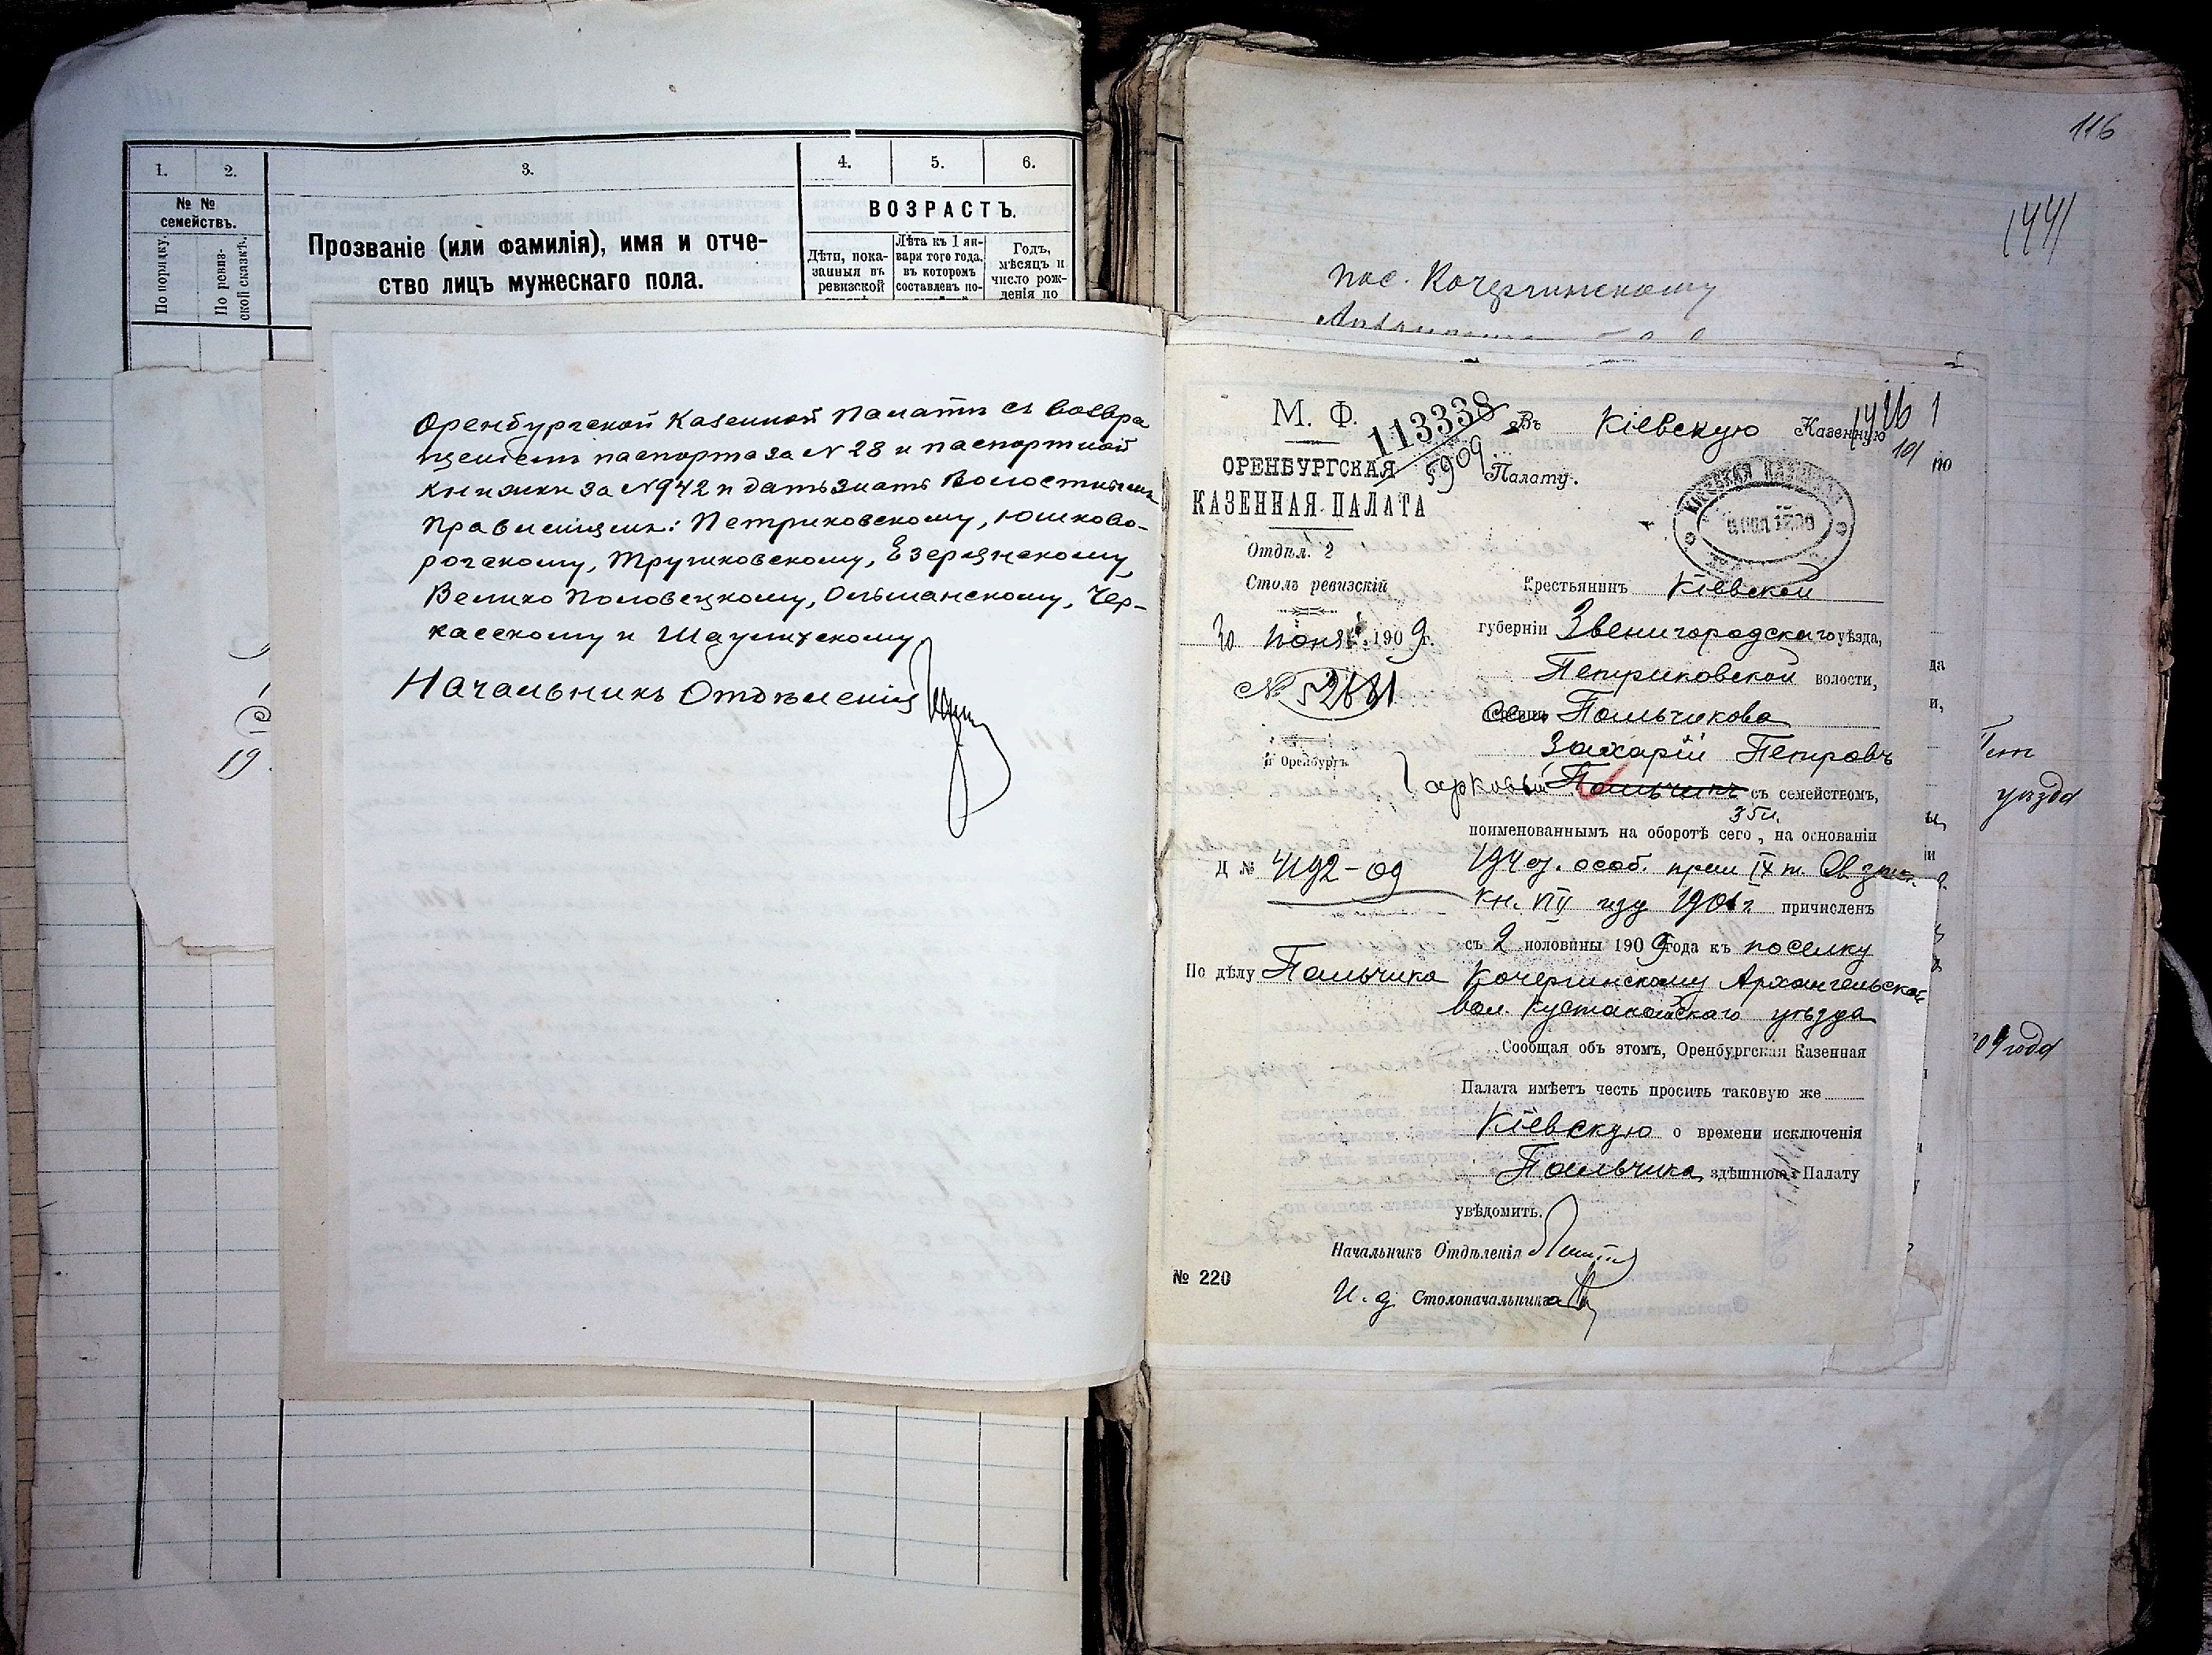 1. 2. 3. 4. 5. 6.
№ № семействъ.
По порядку.
По ревизской сказкѣ.
Прозваніе (или фамилія), имя и отче-
ство лицъ мужескаго пола.
ВОЗРАСТЪ.
Дѣти, пока-
занныя въ
ревизской
Лѣта къ 1 ян-
варя того года,
въ которомъ
составленъ по-
Годъ,
мѣсяцъ и
число рож-
денія по
Оренбургской Казенной Палатѣ съ возвра
щеніемъ паспорта за N 28 и паспортной
книжки за N 942 и дать знать Волостнымъ
Правленіямъ: Петриковскому, Юшково-
рогскому, Трушковскому, Езерянскому,
Велико Половецкому, Ольшанскому, Чер-
касскому и Шаулихскому
Начальникъ Отдѣленія
19
116
1441
пос. Кочергинскому
М. Ф.
113338
5909
ОРЕНБУРГСКАЯ
КАЗЕННАЯ ПАЛАТА
Отдѣл. 2
Столъ ревизскій
30 Іюня 1909 г.
№ 52681
г. Оренбургъ
Д № 4192-09
По дѣлу Пальчика
№ 220
Въ Кіевскую Казенную
Палату.
Крестьянинъ Кіевской
губерніи Звенигородскаго уѣзда,
Петриковской волости,
села Пальчикова
Захарій Петровъ
Гарковый Пальчикъ съ семействомъ,
поименованнымъ на оборотѣ сего, на основаніи
194 ст. особ. прил IX т. Св зак.
кн. VII изд 1901 г причисленъ
съ 2 половины 1909 года къ поселку
Кочергинскому Архангельской
вол. Кустанайскаго уѣзда
Сообщая объ этомъ, Оренбургская Казенная
Палата имѣетъ честь просить таковую же
Кіевскую о времени исключенія
Пальчика здѣшнюю Палату
увѣдомить.
Начальникъ Отдѣленія
И. д Столоначальника
по
да
и,
уѣзда
09 года